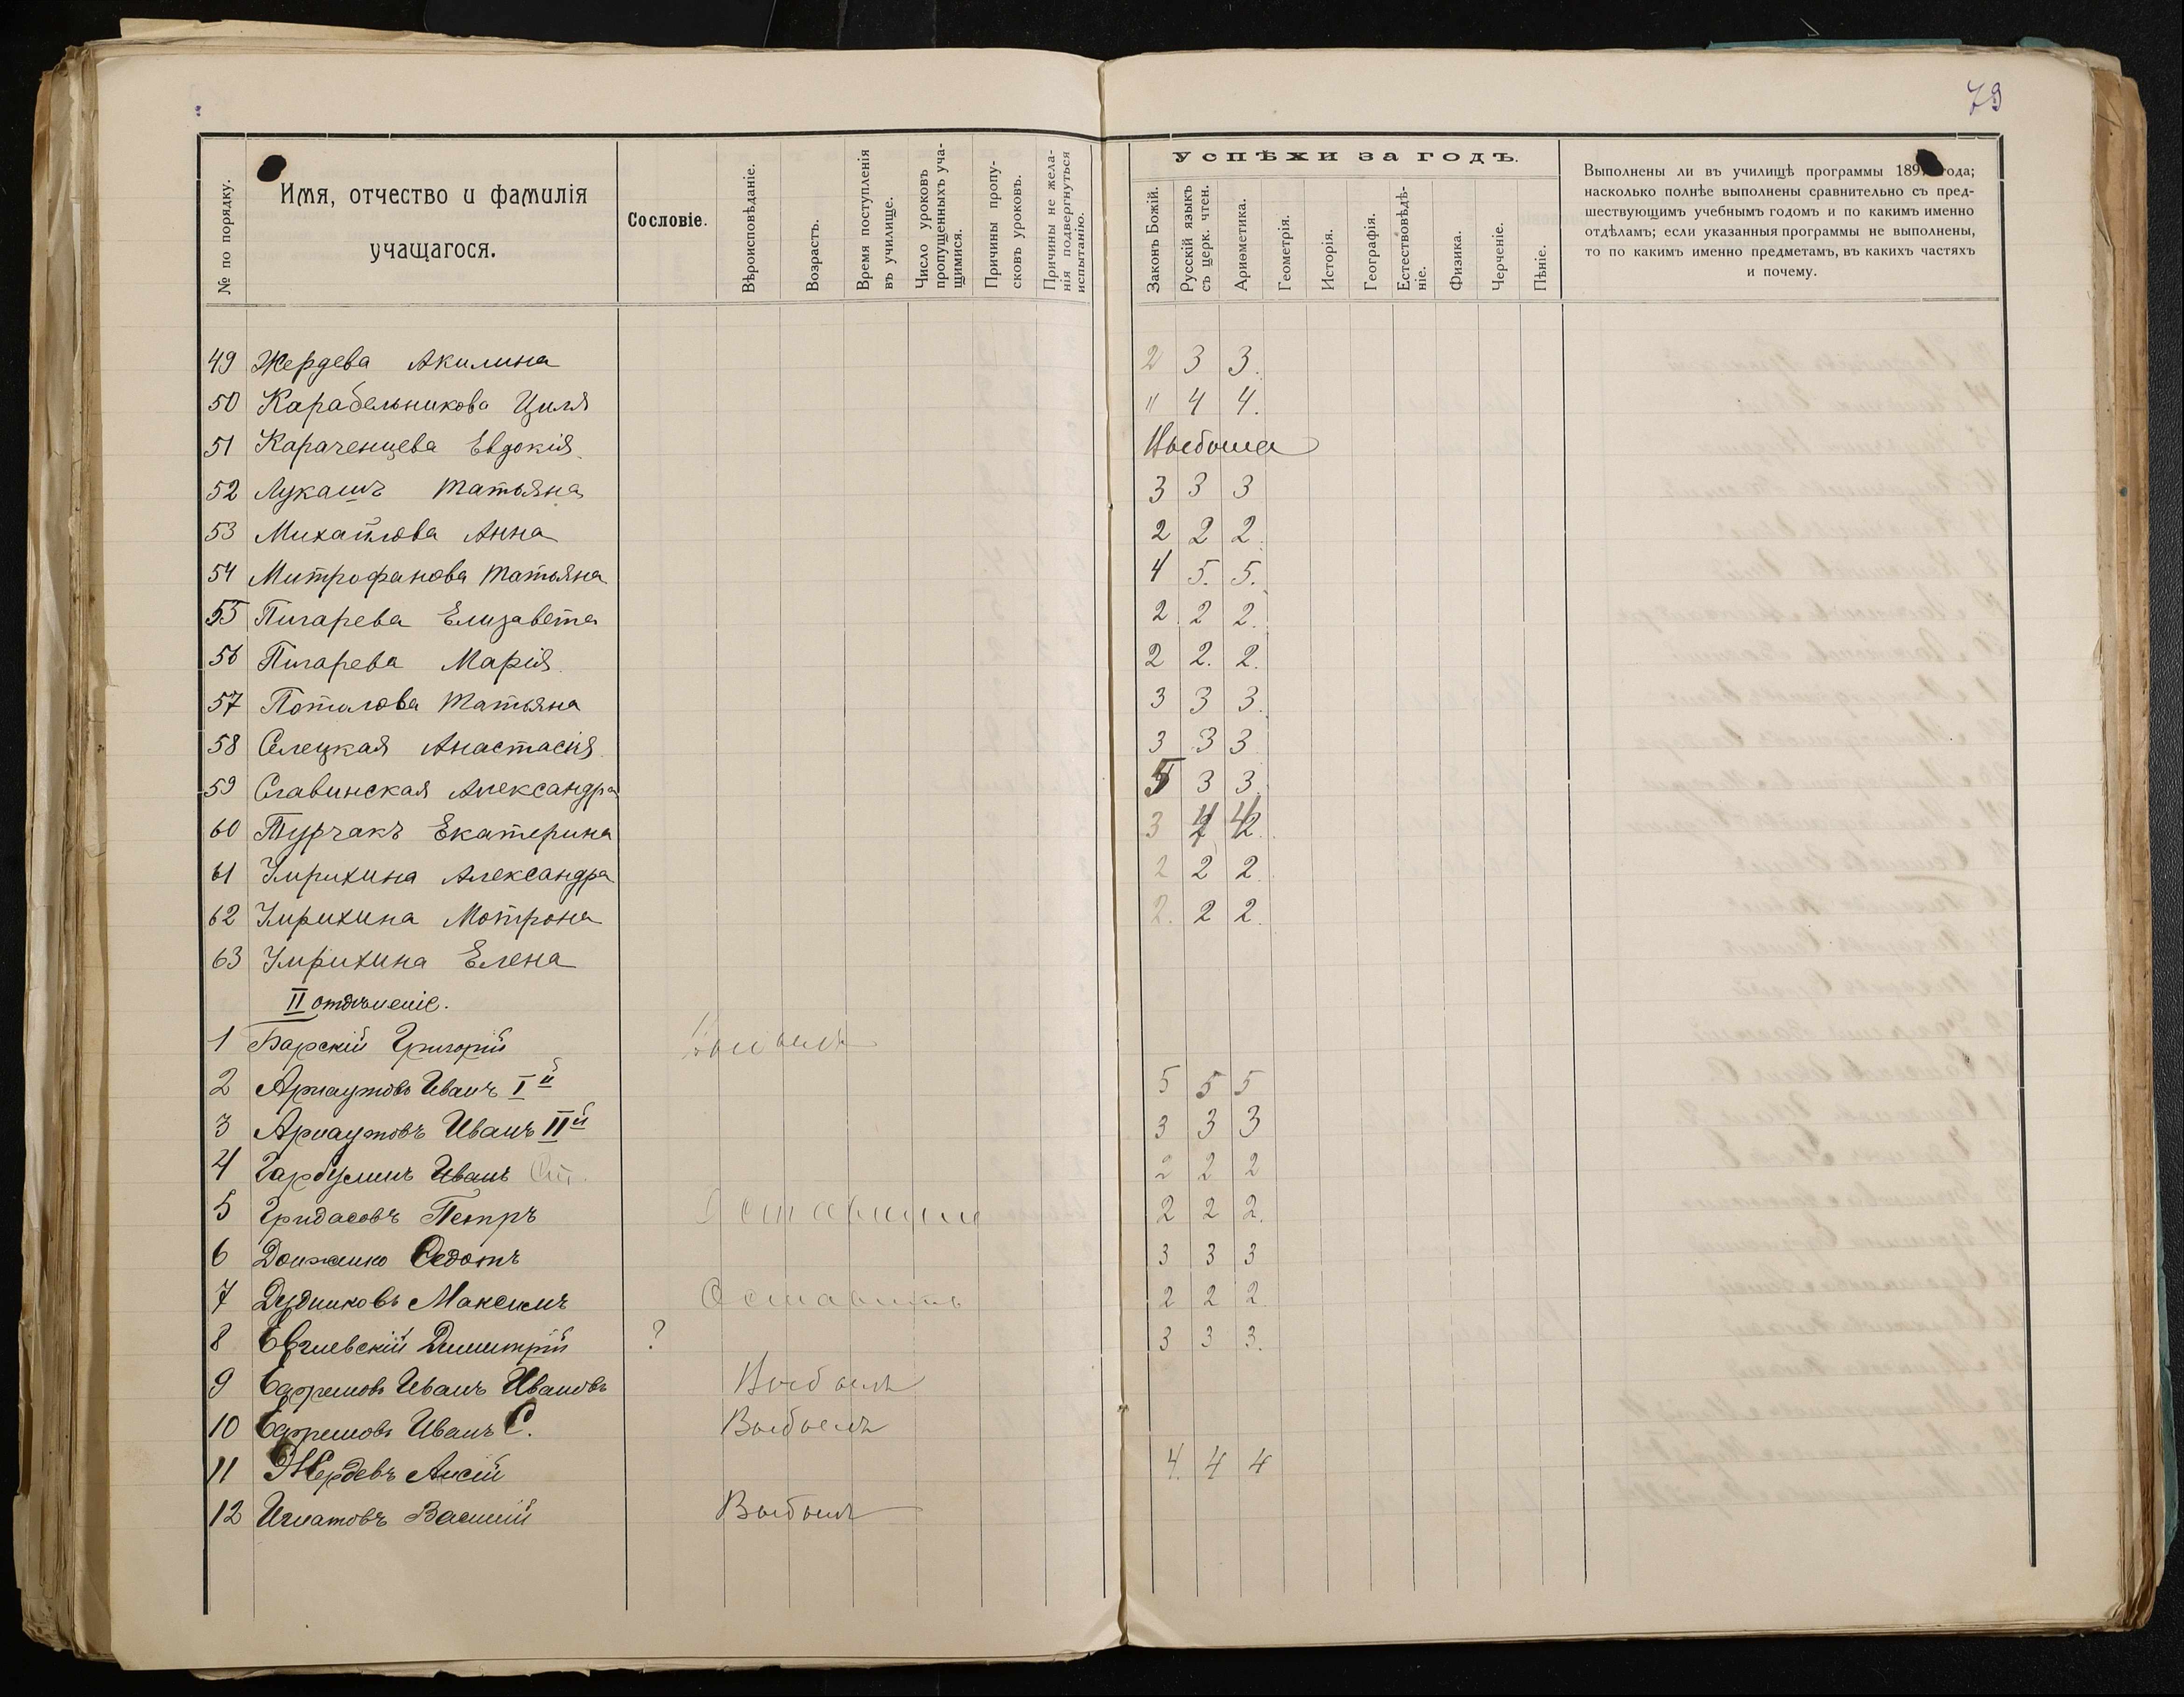 79
№ по порядку.
Имя, отчество и фамилія
учащагося.
Сословіе.
Вѣроисповѣданіе.
Возрастъ.
Время поступленія
въ училище.
Число уроковъ
пропущенныхъ уча-
щимися.
Причины пропу-
сковъ уроковъ.
Причины не жела-
нія подвергнуться
испытанію.
УСПѢХИ ЗА ГОДЪ.
Законъ Божій.
Русскій языкъ
съ церк. чтен.
Ариѳметика.
Геометрія.
Исторія.
Географія.
Естествовѣдѣ-
ніе.
Физика.
Черченіе.
Пѣніе.
Выполнены ли въ училищѣ программы 189 года;
насколько полнѣе выполнены сравнительно съ пред-
шествующимъ учебнымъ годомъ и по какимъ именно
отдѣламъ; если указанныя программы не выполнены,
то по какимъ именно предметамъ, въ какихъ частяхъ
и почему.
49 Жердева Акилина 2 3 3.
50 Карабельникова Циля " 4 4.
51 Караченцева Евдокія Выбыла
52 Лукашъ Татьяна 3 3 3
53 Михайлова Анна 2 2 2.
54 Митрофанова Татьяна 4 5. 5.
55 Пигарева Елизавета 2 2 2.
56 Пигарева Марія 2 2. 2.
57 Потилова Татьяна 3 3 3.
58 Селецкая Анастасія 3 3 3
59 Славинская Александра 5 3 3.
60 Турчакъ Екатерина 3 4 4
61 Умрихина Александра 2 2 2
62 Умрихина Мотрона 2. 2 2.
63 Умрихина Елена
II отдѣленіе.
1 Барскій Григорій Выбылъ
2 Арнаутовъ Иванъ I й 5 5 5
3 Арнаутовъ Иванъ II й 3 3 3
4 Иванъ 2 2 2
5 Гридасовъ Петръ 2 2 2.
6 Должно Федотъ 3 3 3
7 Дудниковъ Максимъ Оставить 2 2 2.
8 Димитрій ? 3 3 3.
9 Ефремовъ Иванъ Ивановъ Выбылъ
10 Ефремовъ Иванъ С. Выбылъ
11 Жердевъ 4. 4 4
12 Игнатовъ Василій Выбылъ